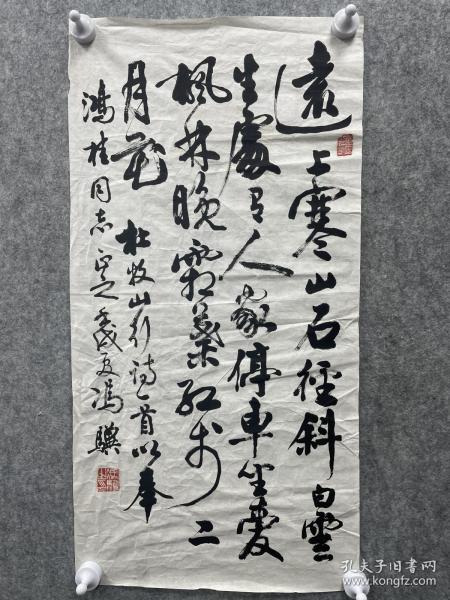 遠上寒山石徑斜白雲
生處有人家停車坐愛
楓林晚霜葉紅於二
月花
杜牧山行詩一首以奉
鴻桂同志正之壬戌夏馮驥
孔夫子旧书网
www.kongfz.com